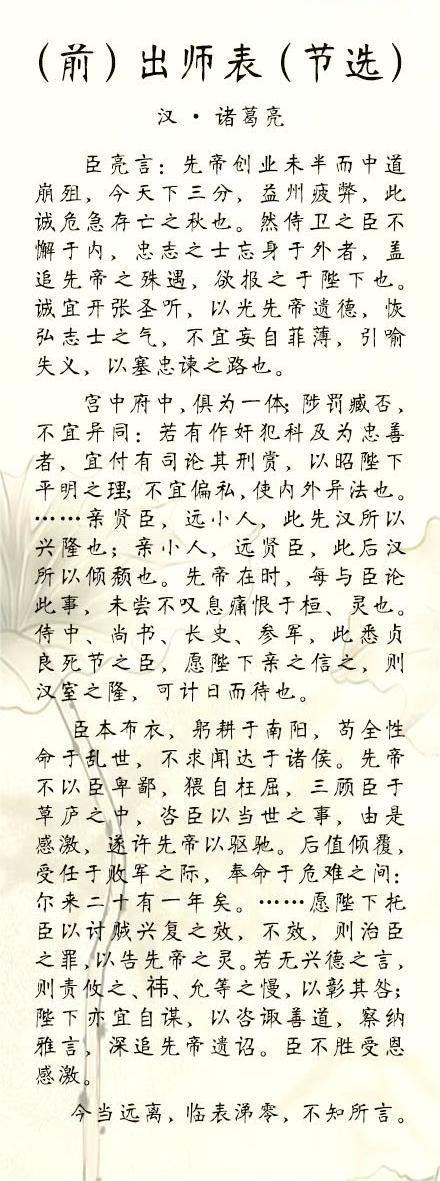 （前）出师表（节选）
汉·诸葛亮
臣亮言：先帝创业未半而中道
崩殂，今天下三分，益州疲弊，此
诚危急存亡之秋也。然侍卫之臣不
懈于内，忠志之士忘身于外者，盖
追先帝之殊遇，欲报之于陛下也。
诚宜开张圣听，以光先帝遗德，恢
弘志士之气，不宜妄自菲薄，引喻
失义，以塞忠谏之路也。
宫中府中，俱为一体；陟罚臧否，
不宜异同：若有作奸犯科及为忠善
者，宜付有司论其刑赏，以昭陛下
平明之理；不宜偏私，使内外异法也。
……亲贤臣，远小人，此先汉所以
兴隆也；亲小人，远贤臣，此后汉
所以倾颓也。先帝在时，每与臣论
此事，未尝不叹息痛恨于桓、灵也。
侍中、尚书、长史、参军，此悉贞
良死节之臣，愿陛下亲之信之，则
汉室之隆，可计日而待也。
臣本布衣，躬耕于南阳，苟全性
命于乱世，不求闻达于诸侯。先帝
不以臣卑鄙，猥自枉屈，三顾臣于
草庐之中，咨臣以当世之事，由是
感激，遂许先帝以驱驰。后值倾覆，
受任于败军之际，奉命于危难之间：
尔来二十有一年矣。……愿陛下托
臣以讨贼兴复之效，不效，则治臣
之罪，以告先帝之灵。若无兴德之言，
则责攸之、祎、允等之慢，以彰其咎；
陛下亦宜自谋，以咨诹善道，察纳
雅言，深追先帝遗诏。臣不胜受恩
感激。
今当远离，临表涕零，不知所言。